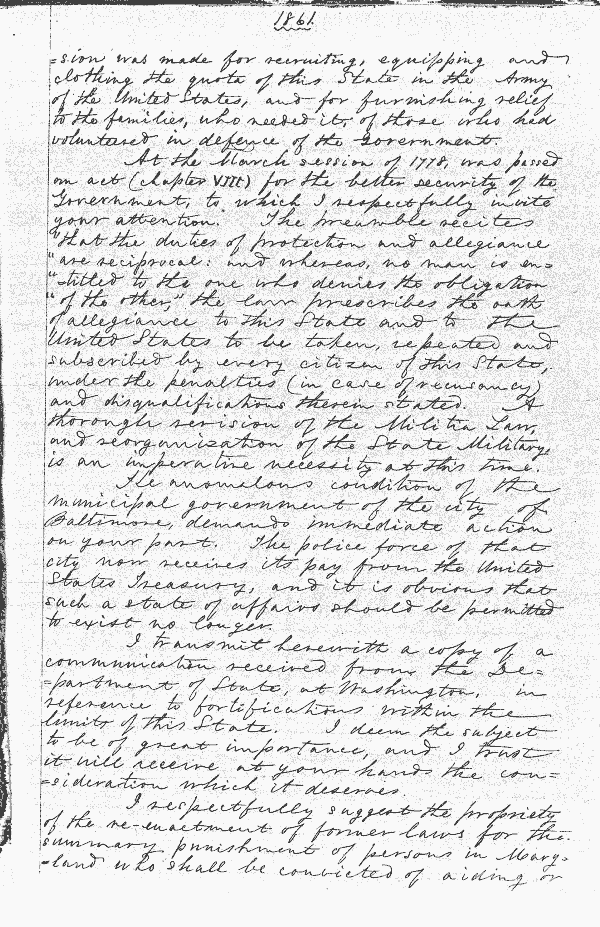 1861.
=sion was made for recruiting, equipping and
clothing the quota of this State in the Army
of the United States, and for furnishing relief
to the families, who needed it, of those who had
volunteered in defence of the Government.
At the March session of 1778, was passed
an act (chapter VIII) for the better security of the
Government, to which I respectfully invite
your attention. The preamble recites
"that the duties of protection and allegiance
"are reciprocal: and whereas, no man is en=
"=titled to the one who denies the obligation
"of the other," the law prescribes the oath
of allegiance to this State and to the
United States to be taken, repeated and
subscribed by every citizen of this State,
under the penalties (in case of recusancy)
and disqualifications therein stated. A
thorough revision of the Militia Law,
and reorganization of the State Military
is an imperative necessity at this time.
The anomalous condition of the
municipal government of the city of
Baltimore, demands immediate action
on your part. The police force of that
city now receives its pay from the United
States Treasury, and it is obvious that
such a state of affairs should be permitted
to exist no longer.
I transmit herewith a copy of a
communication received from the De=
=partment of State, at Washington, in
reference to fortifications within the
limits of this State. I deem the subject
to be of great importance, and I trust
it will receive at your hands the con=
=sideration which it deserves.
I respectfully suggest the propriety
of the re-enactment of former laws for the
summary punishment of persons in Mary=
=land who shall be convicted of aiding or